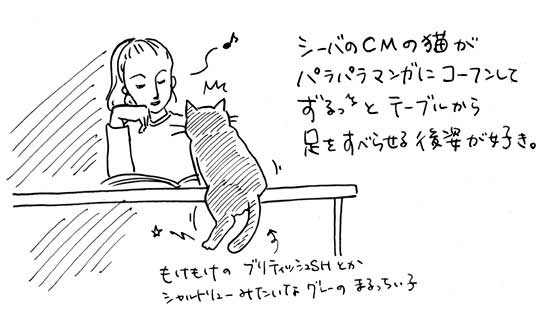 シーバのCMの猫が
パラパラマンガにコーフンして
ずるっっとテーブルから
足をすべらせる後姿が好き。
もけもけのブリティッシュSHとか
シャルトリューみたいなグレーのまるっちい子